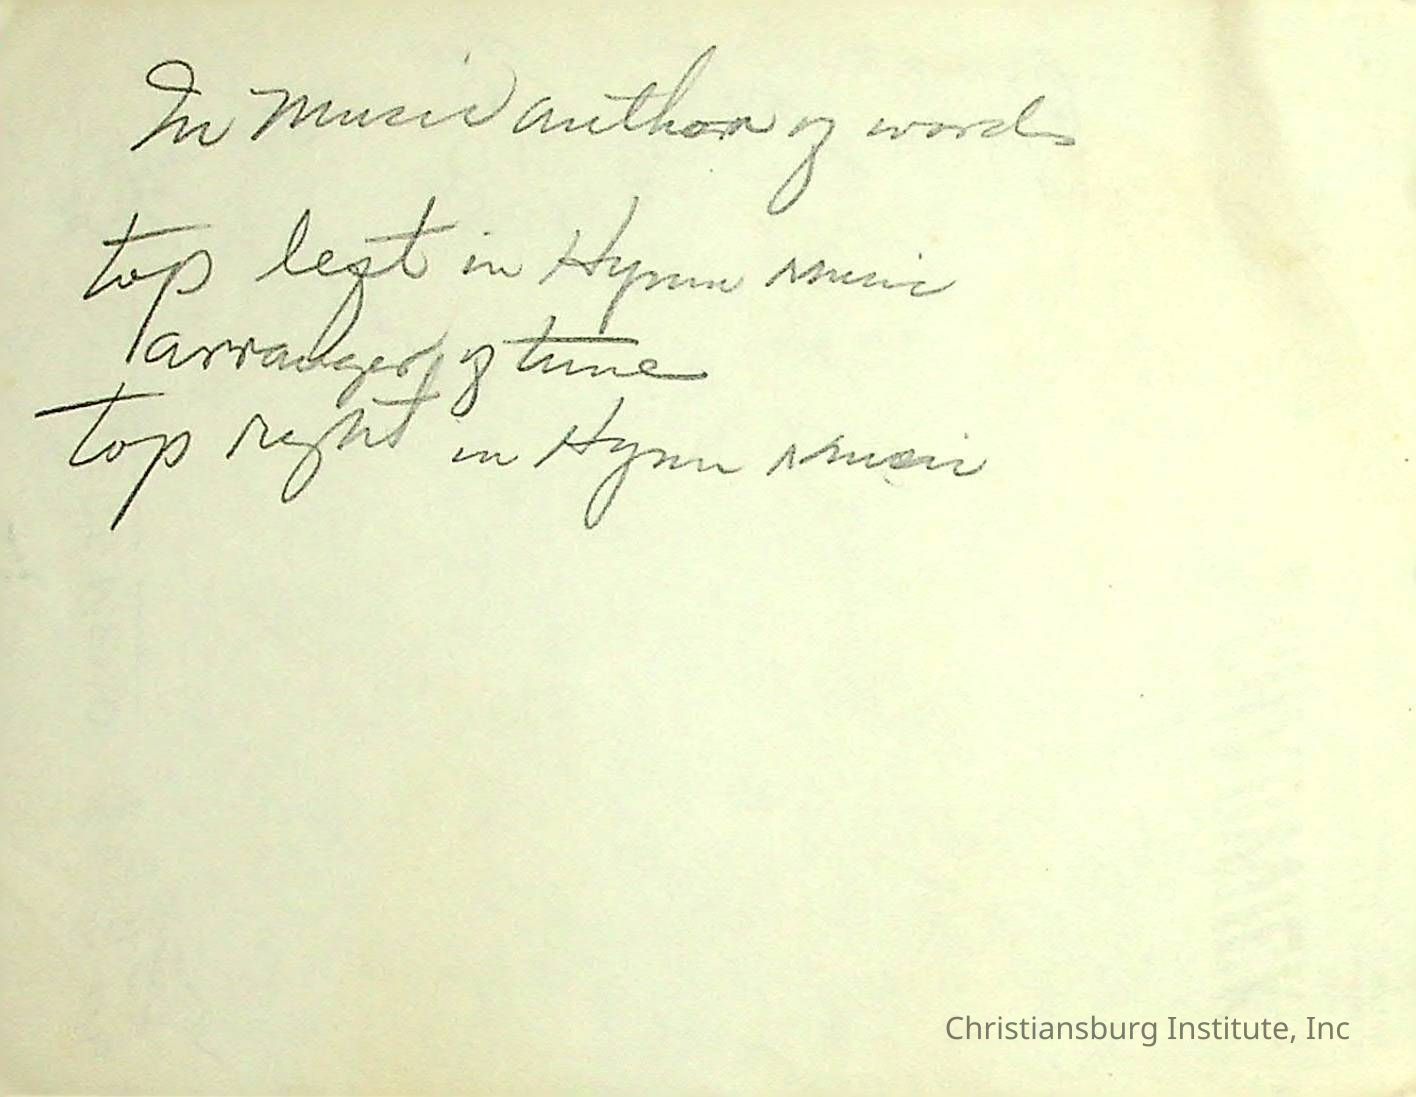 In Music author of words
top left in Hymn Music
arranger of tune
top right in Hymn Music
Christiansburg Institute, Inc